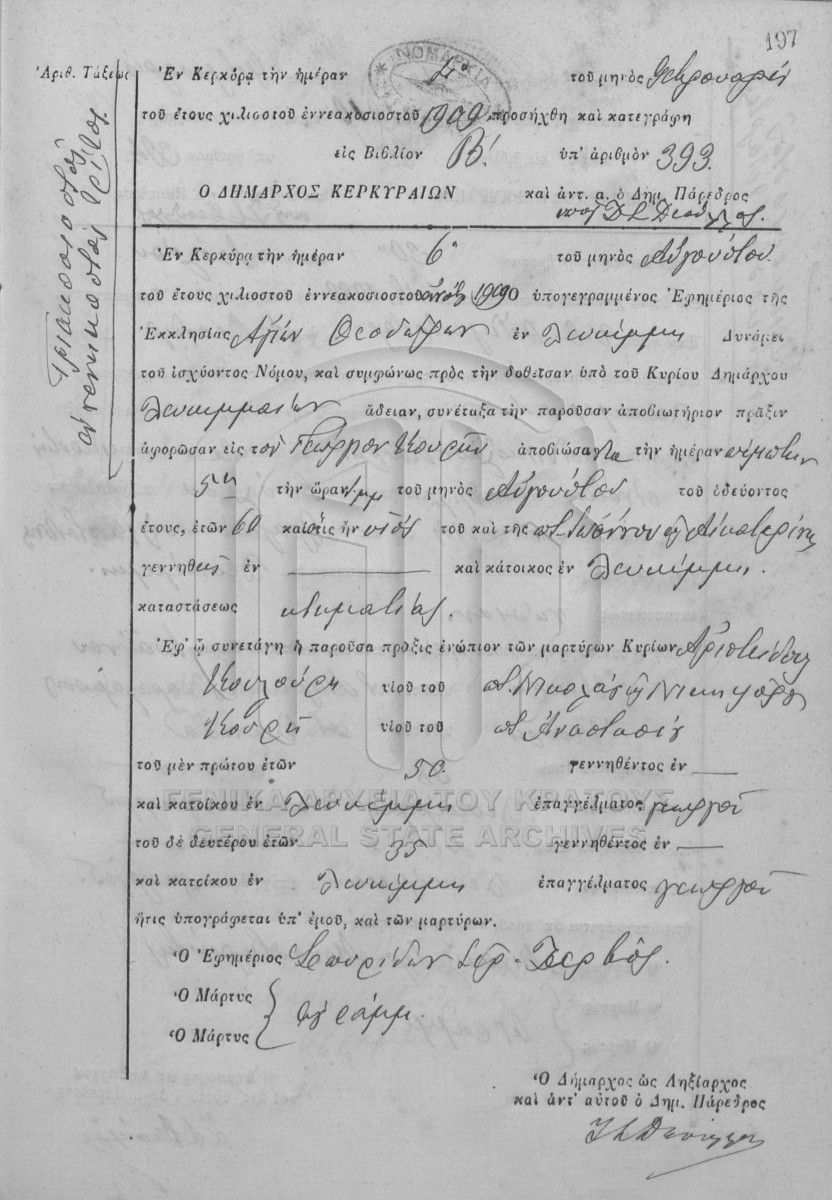 197
ΝΟΜΑΡΧΙΑ
Ἀριθ. Τάξεως
Τριακοσιοστὸν
ἐνενηκοστὸν τρίτον
Ἐν Κερκύρᾳ τὴν ἡμέραν τοῦ μηνὸς Φεβρουαρίου
τοῦ ἔτους χιλιοστοῦ ἐννεακοσιοστοῦ 1909 προσήχθη καὶ κατεγράφη
εἰς Βιβλίον Β′. ὑπ' ἀριθμὸν 393.
Ο ΔΗΜΑΡΧΟΣ ΚΕΡΚΥΡΑΙΩΝ καὶ ἀντ. α. ὁ Δημ. Πάρεδρος
Ἐν Κερκύρᾳ τὴν ἡμέραν 6η τοῦ μηνὸς Αὐγούστου
τοῦ ἔτους χιλιοστοῦ ἐννεακοσιοστοῦ 1900 ὑπογεγραμμένος Ἐφημέριος τῆς
Ἐκκλησίας Ἁγίων Θεοδώρων ἐν Λευκίμμῃ Δυνάμει
τοῦ ἰσχύοντος Νόμου, καὶ συμφώνως πρὸς τὴν δοθεῖσαν ὑπὸ τοῦ Κυρίου Δημάρχου
Λευκιμμαίων ἄδειαν, συνέταξα τὴν παροῦσαν ἀποβιωτήριον πρᾶξιν
ἀφορῶσαν εἰς τὸν Γεώργιον Κουρῆν ἀποβιώσαντα τὴν ἡμέραν πέμπτην
5ην τὴν ὥραν μ.μ. τοῦ μηνὸς Αὐγούστου τοῦ ὁδεύοντος
ἔτους, ἐτῶν 60 καὶ ὅστις ἦν υἱὸς τοῦ καὶ τῆς ποτ. Ἰωάννου καὶ Αἰκατερίνης
γεννηθεὶς ἐν καὶ κάτοικος ἐν Λευκίμμῃ.
καταστάσεως κτηματίας.
Ἐφ' ᾧ συνετάγη ἡ παροῦσα πρᾶξις ἐνώπιον τῶν μαρτύρων Κυρίων Ἀριστείδου
Κουλούρη υἱοῦ τοῦ ποτ. Νικολάου καὶ Νικηφόρου
Κουρῆ υἱοῦ τοῦ ποτ. Ἀναστασίου
τοῦ μὲν πρώτου ἐτῶν 50 γεννηθέντος ἐν
καὶ κατοίκου ἐν Λευκίμμῃ ἐπαγγέλματος γεωργοῦ
ΓΕΝΙΚΑ ΑΡΧΕΙΑ ΤΟΥ ΚΡΑΤΟΥΣ
GENERAL STATE ARCHIVES
τοῦ δὲ δευτέρου ἐτῶν 35 γεννηθέντος ἐν
καὶ κατοίκου ἐν Λευκίμμῃ ἐπαγγέλματος γεωργοῦ
ἥτις ὑπογράφεται ὑπ' ἐμοῦ, καὶ τῶν μαρτύρων.
Ὁ Ἐφημέριος Σπυρίδων ἱερ. Ζερβός.
Ὁ Μάρτυς
Ὁ Μάρτυς ἀγράμμ.
Ὁ Δήμαρχος ὡς Ληξίαρχος
καὶ ἀντ' αὐτοῦ ὁ Δημ. Πάρεδρος